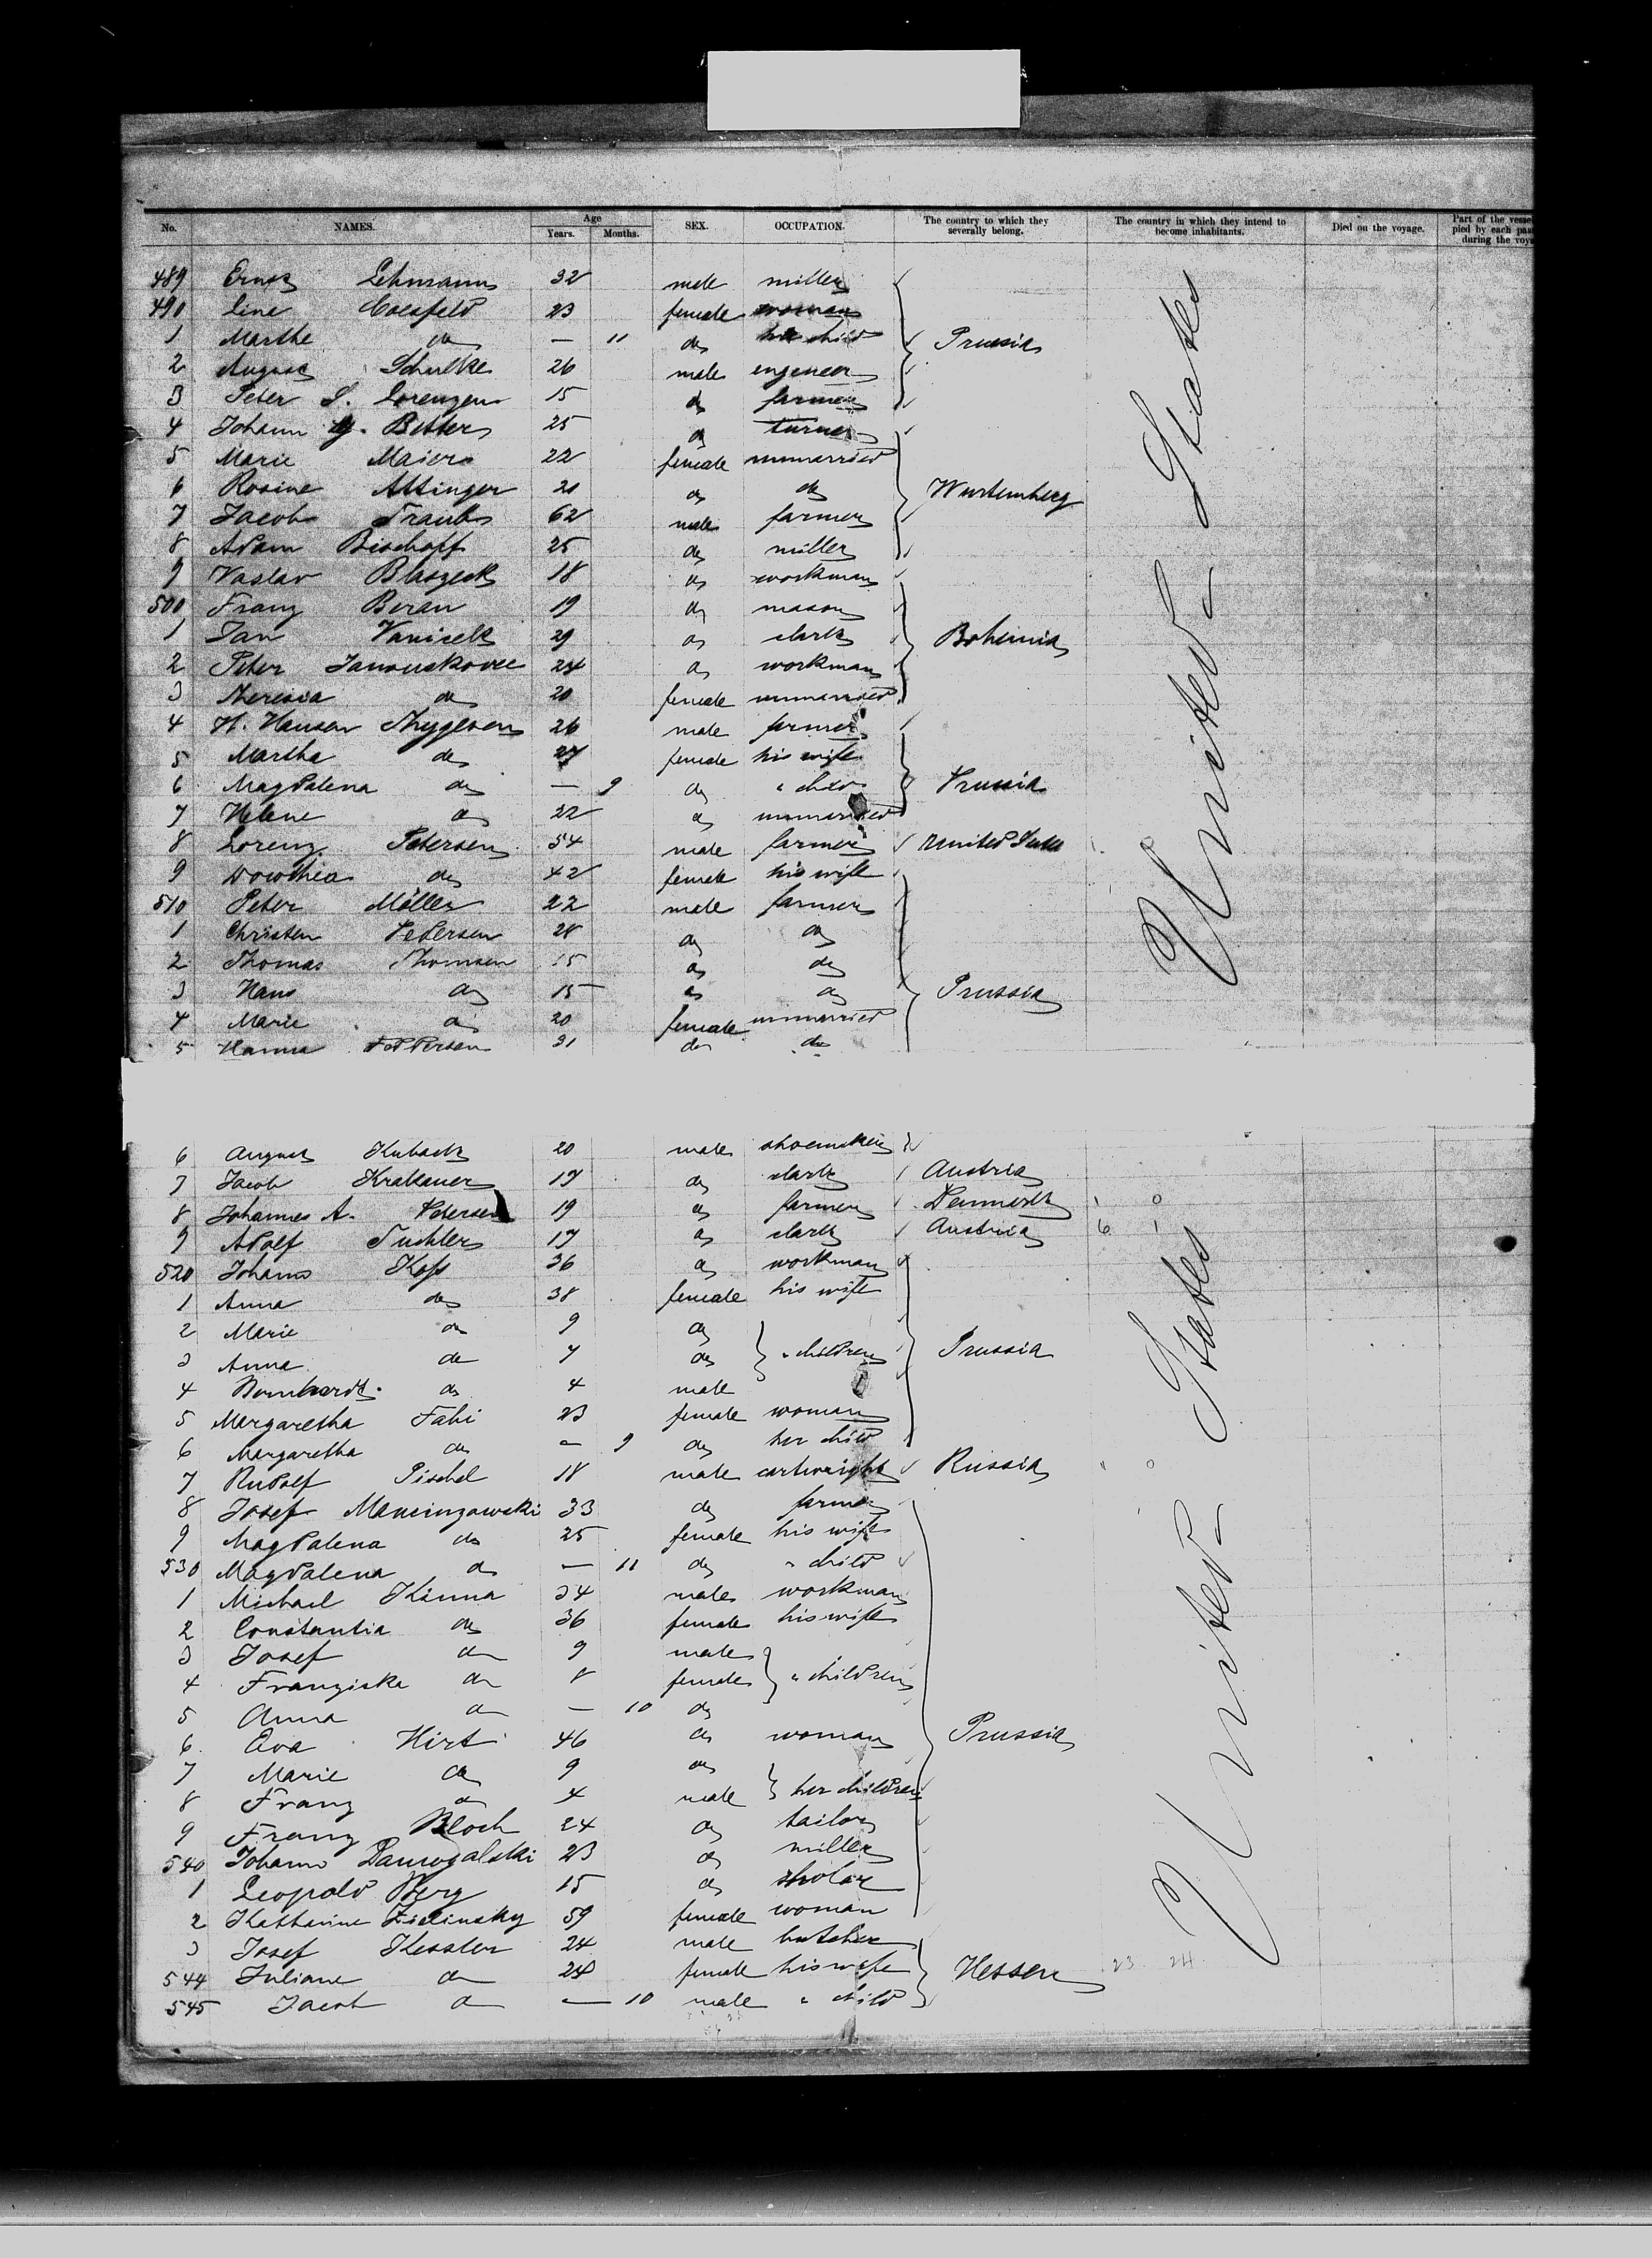 No. NAMES. Age Years. Months. SEX. OCCUPATION. The country to which they severally belong. The country in which they intend to become inhabitants. Died on the voyage. Part of the vesse pied by each pas during the voya
489 Ernst Lehmann 32 male miller
490 Line Coesfeld 23 female woman
1 Marthe do — 11 do her child Prussia
2 August Schulke 26 male engeneer
3 Peter S. Lorenzen 15 do farmer
4 Johann G. Better 25 do turner
5 Marie Maier 22 female unmarried
6 Rosine Attinger 21 do do Wurtemberg
7 Jacob Traub 62 male farmer
8 Adam Bischoff 25 do miller
9 Vaslav Blaszeck 18 do workman
500 Franz Beran 19 do mason
1 Jan Vanisek 29 do clark Bohemia
2 Peter Janouskovec 24 do workman
3 Theresia do 20 female unmarried
4 H. Hansen Thygesen 26 male farmer
5 Martha do 27 female his wife
6 Magdalena do — 9 do " child Prussia
7 Helene do 22 do unmarried
8 Lorenz Petersen 54 male farmer United States
9 Dorothea do 42 female his wife
510 Peter Möller 22 male farmer
1 Christen Petersen 28 do do
2 Thomas Thomsen 15 do do
3 Hans do 15 do do Prussia
4 Marie do 20 female unmarried
5 Hanna Feddersen 31 do do
United States
6 August Kuback 20 male shoemaker
7 Jacob Krakauer 17 do clark Austria
8 Johannes A. Petersen 19 do farmer Denmark 1 0
9 Adolf Tuchler 17 do clark Austria 6 1
520 Johann Koss 36 do workman
1 Anna do 38 female his wife
2 Marie do 9 do
3 Anna do 7 do " children Prussia
4 Bernhardt do 4 male
5 Margaretha Fahi 23 female woman
6 Margaretha do — 9 do her child
7 Rudolf Pischel 18 male cartwright Russia
8 Josef Mancinzawski 33 do farmer
9 Magdalena do 25 female his wife
530 Magdalena do — 11 do " child
1 Michael Kinna 34 male workman
2 Constantia do 36 female his wife
3 Josef do 9 male
4 Franziska do 8 female " children
5 Anna do — 10 do
6 Eva Hirt 46 do woman Prussia
7 Marie do 9 do
8 Franz do 4 male her children
9 Franz Bloch 24 do tailor
540 Johann Damrogalski 23 do miller
1 Leopold Berg 15 do sholar
2 Katharine Zielinsky 59 female woman
3 Josef Kessler 24 male butcher
544 Juliane do 28 female his wife Hessen 23 24
545 Jacob do — 10 male " child
United States